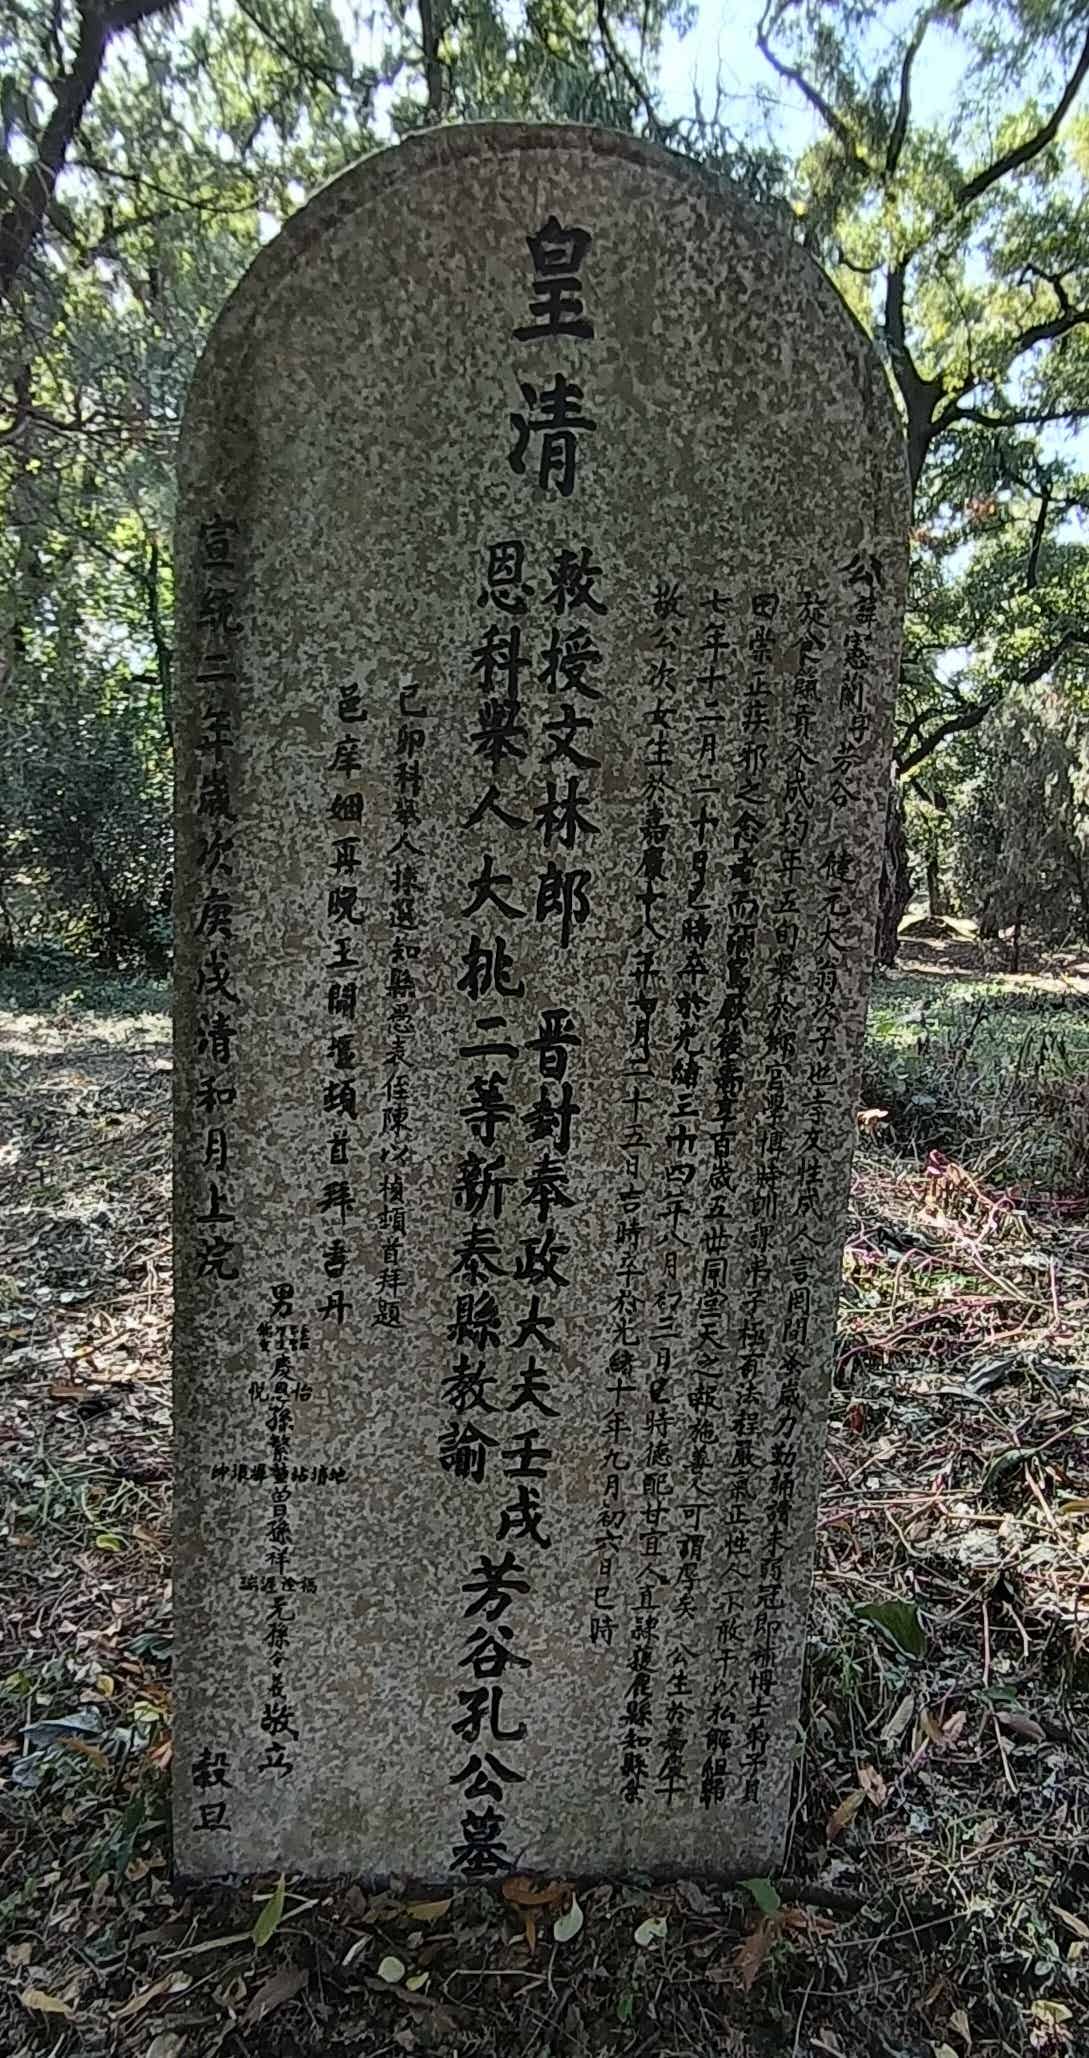 公諱憲蘭字芳谷 健元大翁次子也孝友性成人言罔間冬歲力勤誦讀未弱冠即補博士弟子員
旋食餼貢入成均年五旬襄於鄉官學博時訓課弟子極有法程嚴氣正性人不敢干以私解組歸
田崇正疾邪之念老而彌篤厥後壽享百歲五世同堂天之報施善人可謂厚矣 公生於嘉慶十
七年十二月二十日巳時卒於光緒三十四年八月初三日巳時德配甘宜人直隸 縣知縣
敬公次女生於嘉慶十八年七月二十五日吉時卒於光緒十年九月初六日巳時
皇清
敕授文林郎 晋封奉政大夫壬戌
恩科舉人大挑二等新泰縣教諭
芳谷孔公墓
己卯科舉人揀選知縣愚表侄陳以楨頓首拜題
邑庠姻再晚王開運頓首拜書丹
男 慶恩 孫繁 曾孫祥 元孫令 敬立
宣統二年歲次庚戌清和月上浣 穀旦